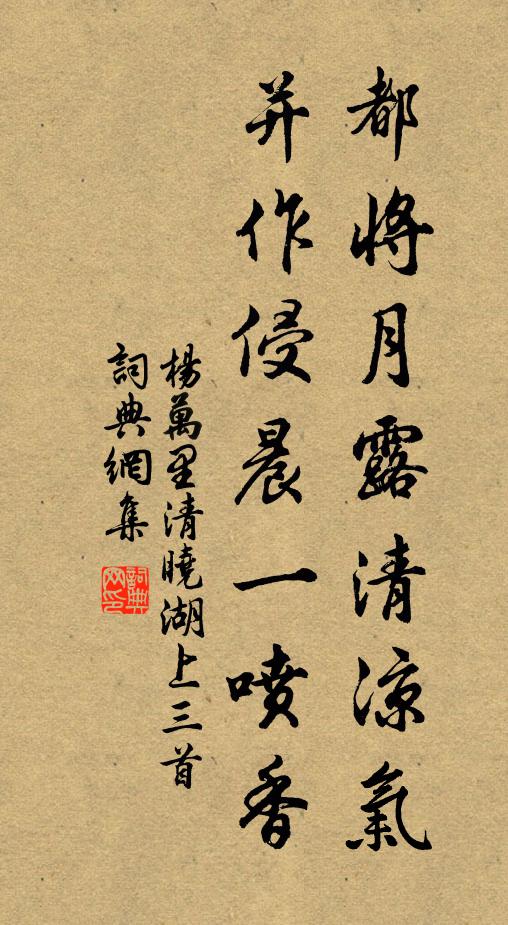 都將月露清涼氣
并作侵晨一噴香
楊萬里清曉湖上三首
詞典網集
詞典网印